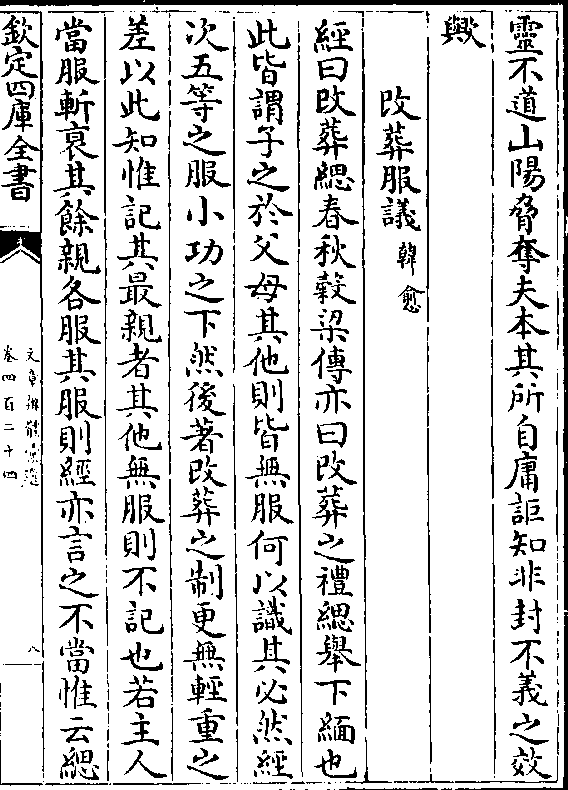 靈不道山陽脅奪夫本其所自庸詎知非封不義之效
歟
改葬服議韓愈
經曰改葬緦春秋穀梁傳亦曰改葬之禮緦舉下緬也
此皆謂子之於父母其他則皆無服何以識其必然經
次五等之服小功之下然後著改葬之制更無輕重之
差以此知惟記其最親者其他無服則不記也若主人
當服斬衰其餘親各服其服則經亦言之不當惟云緦
欽定四庫全書
文章辨體彙選
卷四百二十四
八